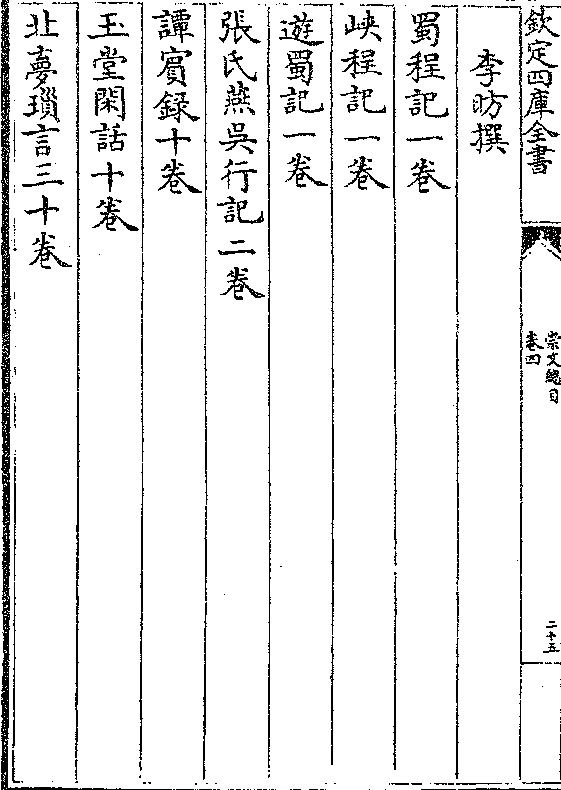 欽定四庫全書
崇文總目
卷四
二十五
李昉撰
蜀程記一卷
峽程記一卷
遊蜀記一卷
張氏燕吳行記二卷
譚賓録十卷
玉堂閑話十卷
北夢瑣言三十卷